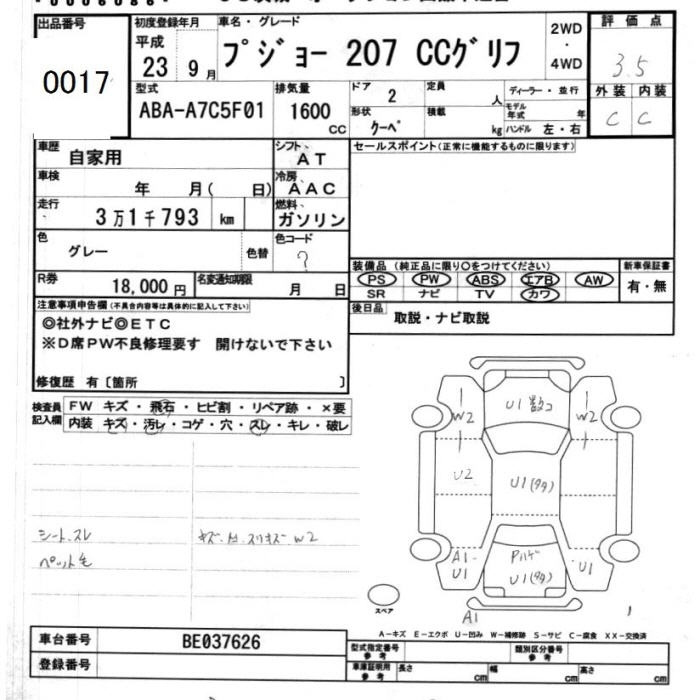 出品番号
0017
初度登録年月
平成
23 9月
車名・グレード
プジョー 207 CCグリフ
2WD
・
4WD
評価点
3.5
外装 内装
C C
型式
ABA-A7C5F01
排気量
1600
CC
ドア
2
定員
人
形状
クーペ
積載
kg
ディーラー・並行
モデル年式
年
ハンドル 左・右
車歴
自家用
シフト
AT
車検
年 月( 日)
冷房
AAC
走行
3万1千793 km
燃料
ガソリン
色
グレー
色替
色コード
?
R券
18,000円
名変通知期限
月 日
セールスポイント(正常に機能するものに限ります)
装備品(純正品に限り○をつけてください)
PS PW ABS エアB AW
SR ナビ TV カワ
新車保証書
有・無
後日品
取説・ナビ取説
注意事項申告欄(不具合内容等は具体的に記入して下さい)
◎社外ナビ◎ETC
※D席PW不良修理要す 開けないで下さい
修復歴 有〔箇所 〕
検査員記入欄
FW キズ・飛石・ヒビ割・リペア跡・×要
内装 キズ・汚レ・コゲ・穴・スレ・キレ・破レ
シートスレ
ペット毛
W2
W2
U1
W2
U2
U1
A1
U1
U1
U1
A1
スペア
A-キズ E-エクボ U-凹み W-補修跡 S-サビ C-腐食 XX-交換済
車台番号
BE037626
登録番号
型式指定番号
参考
類別区分番号
参考
車庫証明用
参考
長さ
cm
幅
cm
高さ
cm